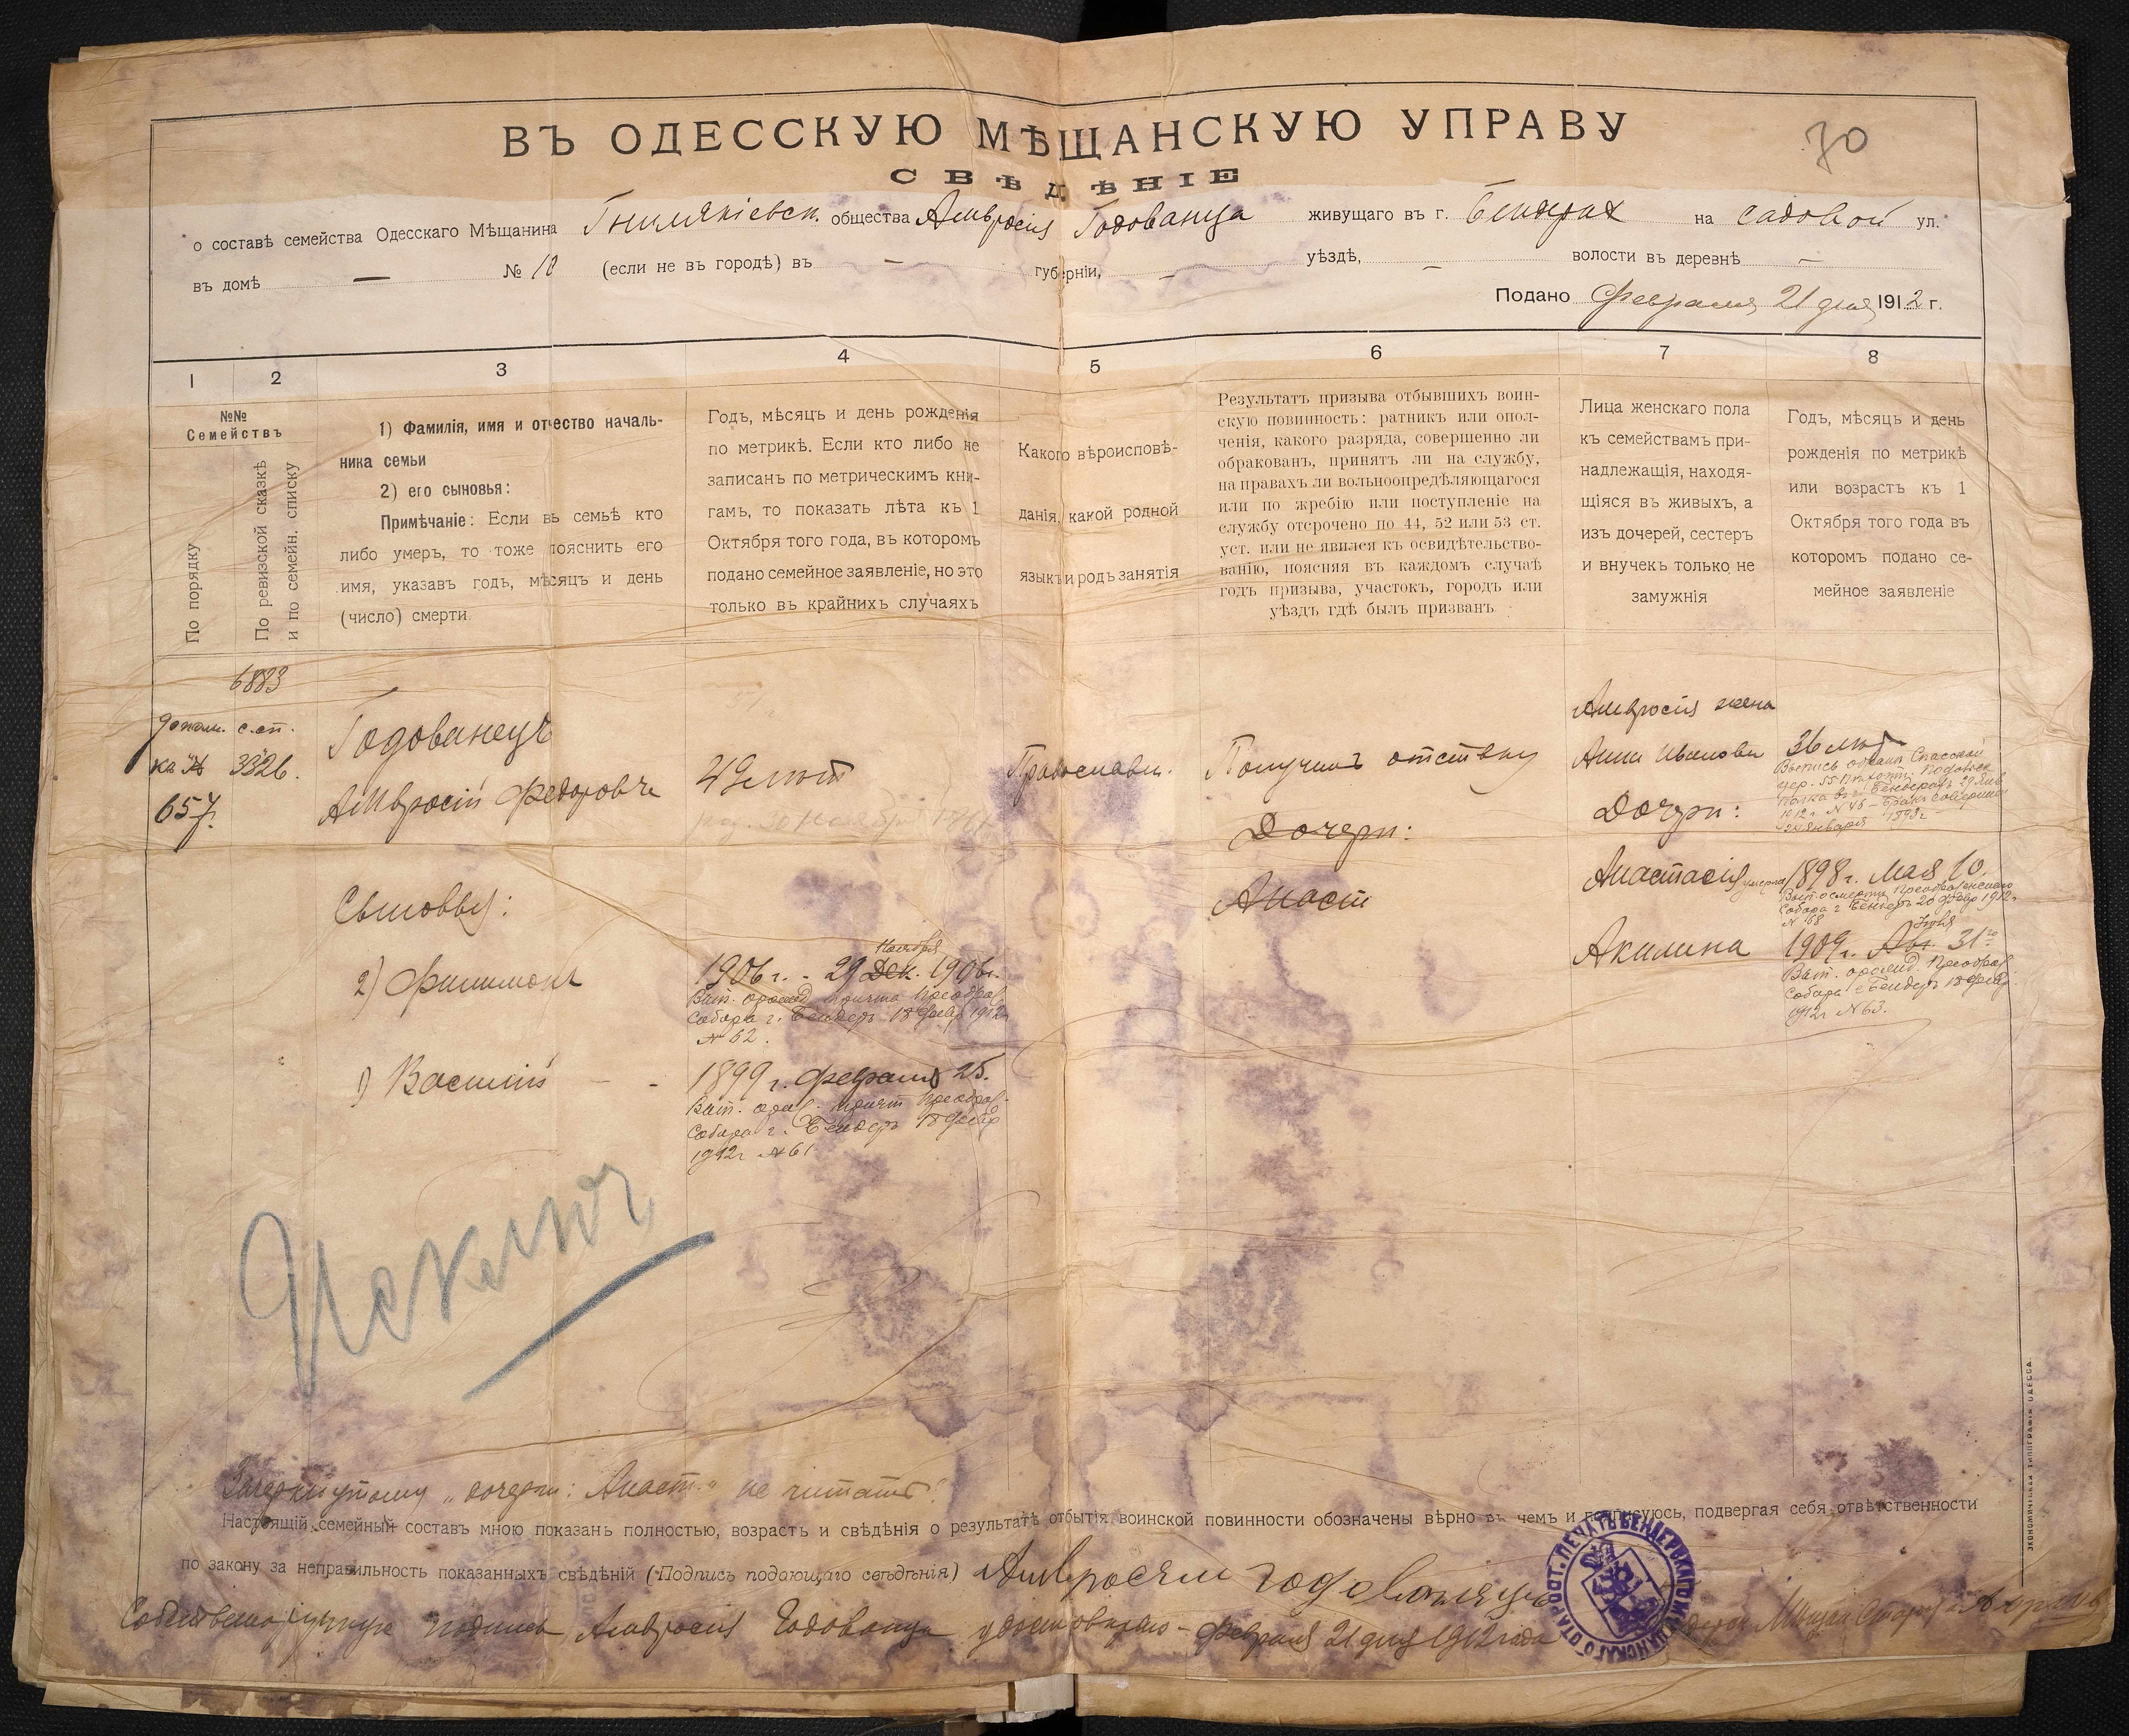 ВЪ ОДЕССКУЮ МѢЩАНСКУЮ УПРАВУ
70
СВѢДѢНІЕ
о составѣ семейства Одесскаго Мѣщанина общества Амвросія Годованца живущаго въ г. Бендерах на садовой ул.
въ домѣ — № 10 (если не въ городѣ) въ — губерніи, — уѣздѣ, — волости въ деревнѣ —
Подано Февраля 21 дня 1912 г.
1 2 3 4 5 6 7 8
№№
Семействъ
По порядку
По ревизской сказкѣ
и по семейн. списку
1) Фамилія, имя и отчество началь-
ника семьи
2) его сыновья:
Примѣчаніе: Если въ семьѣ кто
либо умеръ, то тоже пояснить его
имя, указавъ годъ, мѣсяцъ и день
(число) смерти.
Годъ, мѣсяцъ и день рожденія
по метрикѣ. Если кто либо не
записанъ по метрическимъ кни-
гамъ, то показать лѣта къ 1
Октября того года, въ которомъ
подано семейное заявленіе, но это
только въ крайнихъ случаяхъ
Какого вѣроисповѣ-
данія, какой родной
языкъ и родъ занятія
Результатъ призыва отбывшихъ воин-
скую повинность: ратникъ или опол-
ченія, какого разряда, совершенно ли
обракованъ, принятъ ли на службу,
на правахъ ли вольноопредѣляющагося
или по жребію или поступленіе на
службу отсрочено по 44, 52 или 53 ст.
уст. или не явился къ освидѣтельство-
ванію, поясняя въ каждомъ случаѣ
годъ призыва, участокъ, городъ или
уѣздъ гдѣ былъ призванъ
Лица женскаго пола
къ семействамъ при-
надлежащія, находя-
щіяся въ живыхъ, а
изъ дочерей, сестеръ
и внучекъ только не
замужнія
Годъ, мѣсяцъ и день
рожденія по метрикѣ
или возрастъ къ 1
Октября того года въ
которомъ подано се-
мейное заявленіе
6883
с.сп.
3826.
657.
Годованецъ
Амвросій Федоровъ
49 лѣт
род. 30 Ноября 1861
Православн.
Получилъ отставку
Дочери:
Анаст
Амвросія жена
Анна Иванова
36 лѣт
Дочери:
Анастасія умерла 1898 г. Мая 10.
Собора г. Бендеръ 20 февр 1912 г.
№ 68
Акилина
Іюля
1909 г. Авг. 31го
Вып. о рожд. Преображ.
Собора г Бендеръ 18 февр.
1912 г №63.
Сыновья:
2) Филимонъ
Ноября
1906 г. - 29 Дек. 1906 г.
Вып. о рожд. причта Преображ.
Собора г. Бендеръ 18 февр 1912 г
№ 62.
1) Василій - -
1899 г. Февраля 25.
Вып. о рожд. причт Преображ.
Собора г. Бендеръ 18 февр
1912 г №61
Исключ.
Зачеркнутому „дочери: Анаст.“ не читать.
Настоящій семейный составъ мною показанъ полностью, возрастъ и свѣдѣнія о результатѣ отбытія воинской повинности обозначены вѣрно въ чемъ и подписуюсь, подвергая себя отвѣтственности
по закону за неправильность показанныхъ свѣдѣній (Подпись подающаго свѣдѣнія) Амвросям годованяцъ
Собственноручную подпись Амвросія Годованца удостовѣряю - Февраля 21 дня 1912 года
ПЕЧАТЬ БЕНДЕРСКАГО МѢЩАНСКАГО СТАРОСТ.
ЭКОНОМИЧЕСКАЯ ТИПОГРАФІЯ ОДЕССА.